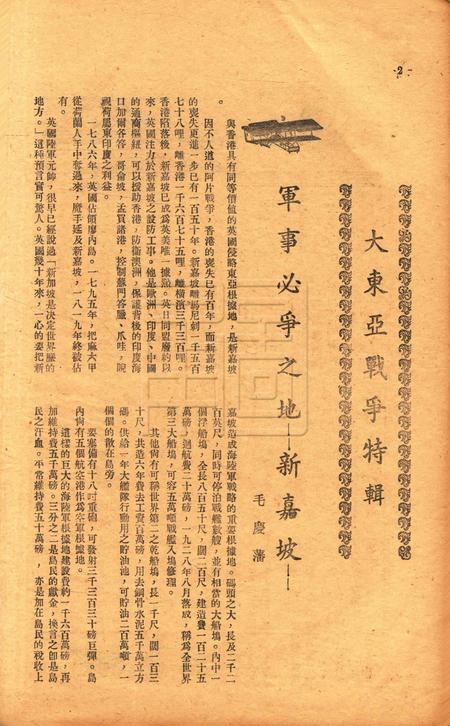 -2-
大東亞戰爭特輯
軍事必爭之地—新嘉坡—
毛慶藩
與香港具有同等價値的英國侵略東亞根據地，是新嘉坡
。
因不人道的阿片戰爭，香港的喪失已有百年，而新嘉坡
的喪失更進一步已有一百五十年。新嘉坡離瑪尼剌一千五百
七十八哩，離香港一千六百七十五哩，離橫濱三千三百哩。
香港陷落後，新嘉坡已成爲英美唯一據點。英日同盟廢約以
來，英國注力於新嘉坡之設防工事。他是歐洲、印度、中國
的通商樞紐，可以援助香港，防衛澳洲，保護背後的印度海
口加爾各答，哥侖坡，孟買諸港，控制蘇門答臘、爪哇，睨
視荷屬東印度之利益。
一七八六年，英國佔領庫內島。一七九五年，把麻六甲
從荷蘭人手中奪過來，魔手延及新嘉坡，一八一九年終被佔
有。
英國陸軍元帥，很早已經說過「新加坡是決定世界歷的
地方。」這種預言實可驚人。英國幾十年來，一心的要把新
嘉坡造成海陸軍戰略的重要根據地。碼頭之大，長及二千二
百英尺，同時可停泊戰艦數艘，並有相當的大船塢。內中一
個浮船塢，全長八百五十尺，闊二百尺，建造費一百二十五
萬磅，迴航費二十萬磅，一九二八年八月落成，稱爲全世界
第三大船塢，可容五萬噸戰艦入塢修理。
其他尙有可稱世界第二之乾船塢，長一千尺，闊一百三
十尺，共造六年費去工費百萬磅，用去鋼骨水泥五千萬立方
碼。供給一年大艦隊行動用之貯油池，可貯油二百萬噸，一
個個的散在島旁。
要塞備有十八吋重砲，可發射三千三百三十磅巨彈。島
內尙有五個航空港作爲空軍根據地。
這樣的巨大的海陸軍根據地建設費約一千六百萬磅，再
加維持費五千萬磅。三分之二是島民的獻金，換言之卽是島
民之汗血。平常維持費五十萬磅，亦是加在島民的稅收上